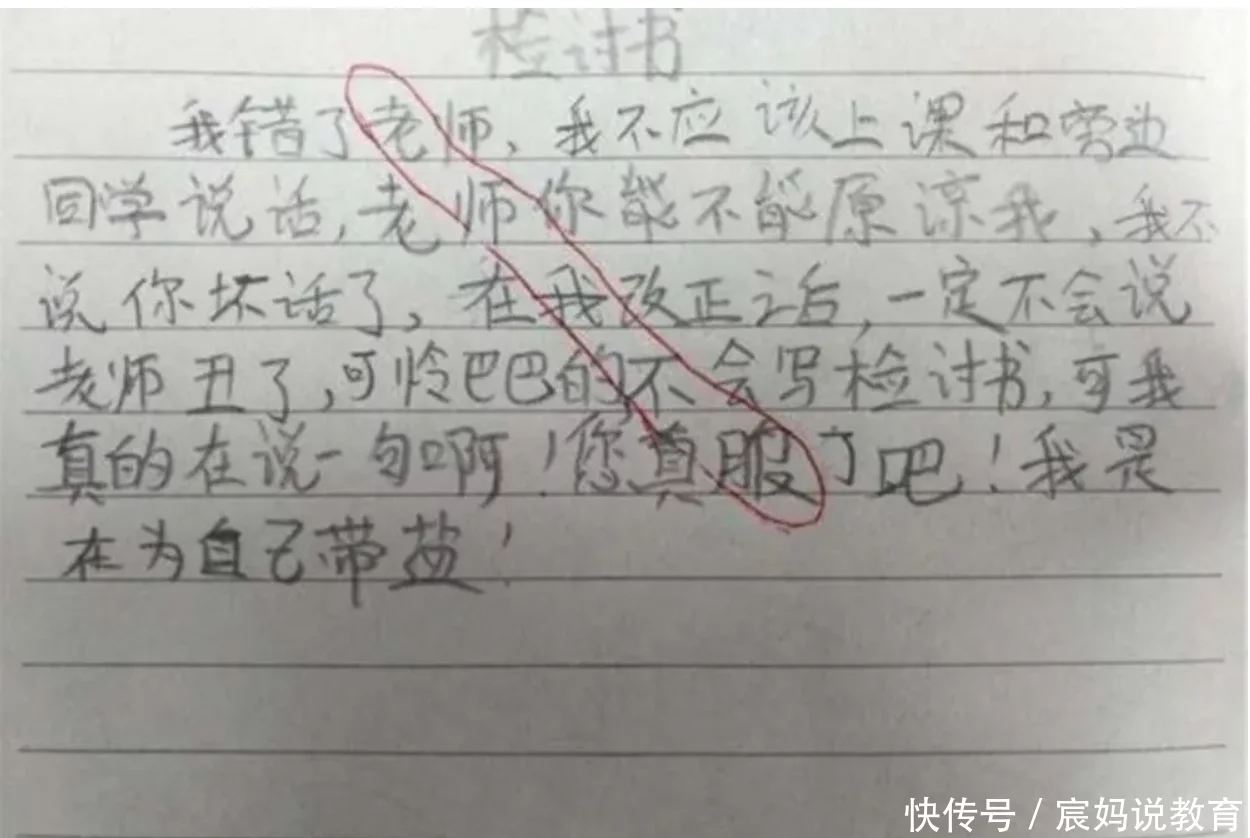 检讨书
我错了老师，我不应该上课和旁边
同学说话，老师你能不能原谅我，我不
说你坏话了，在我改正之后，一定不会说
老师丑了，可怜巴巴的不会写检讨书，可我
真的在说一句啊！您真服了吧！我是
在为自己带盐！
快传号 / 宸妈说教育